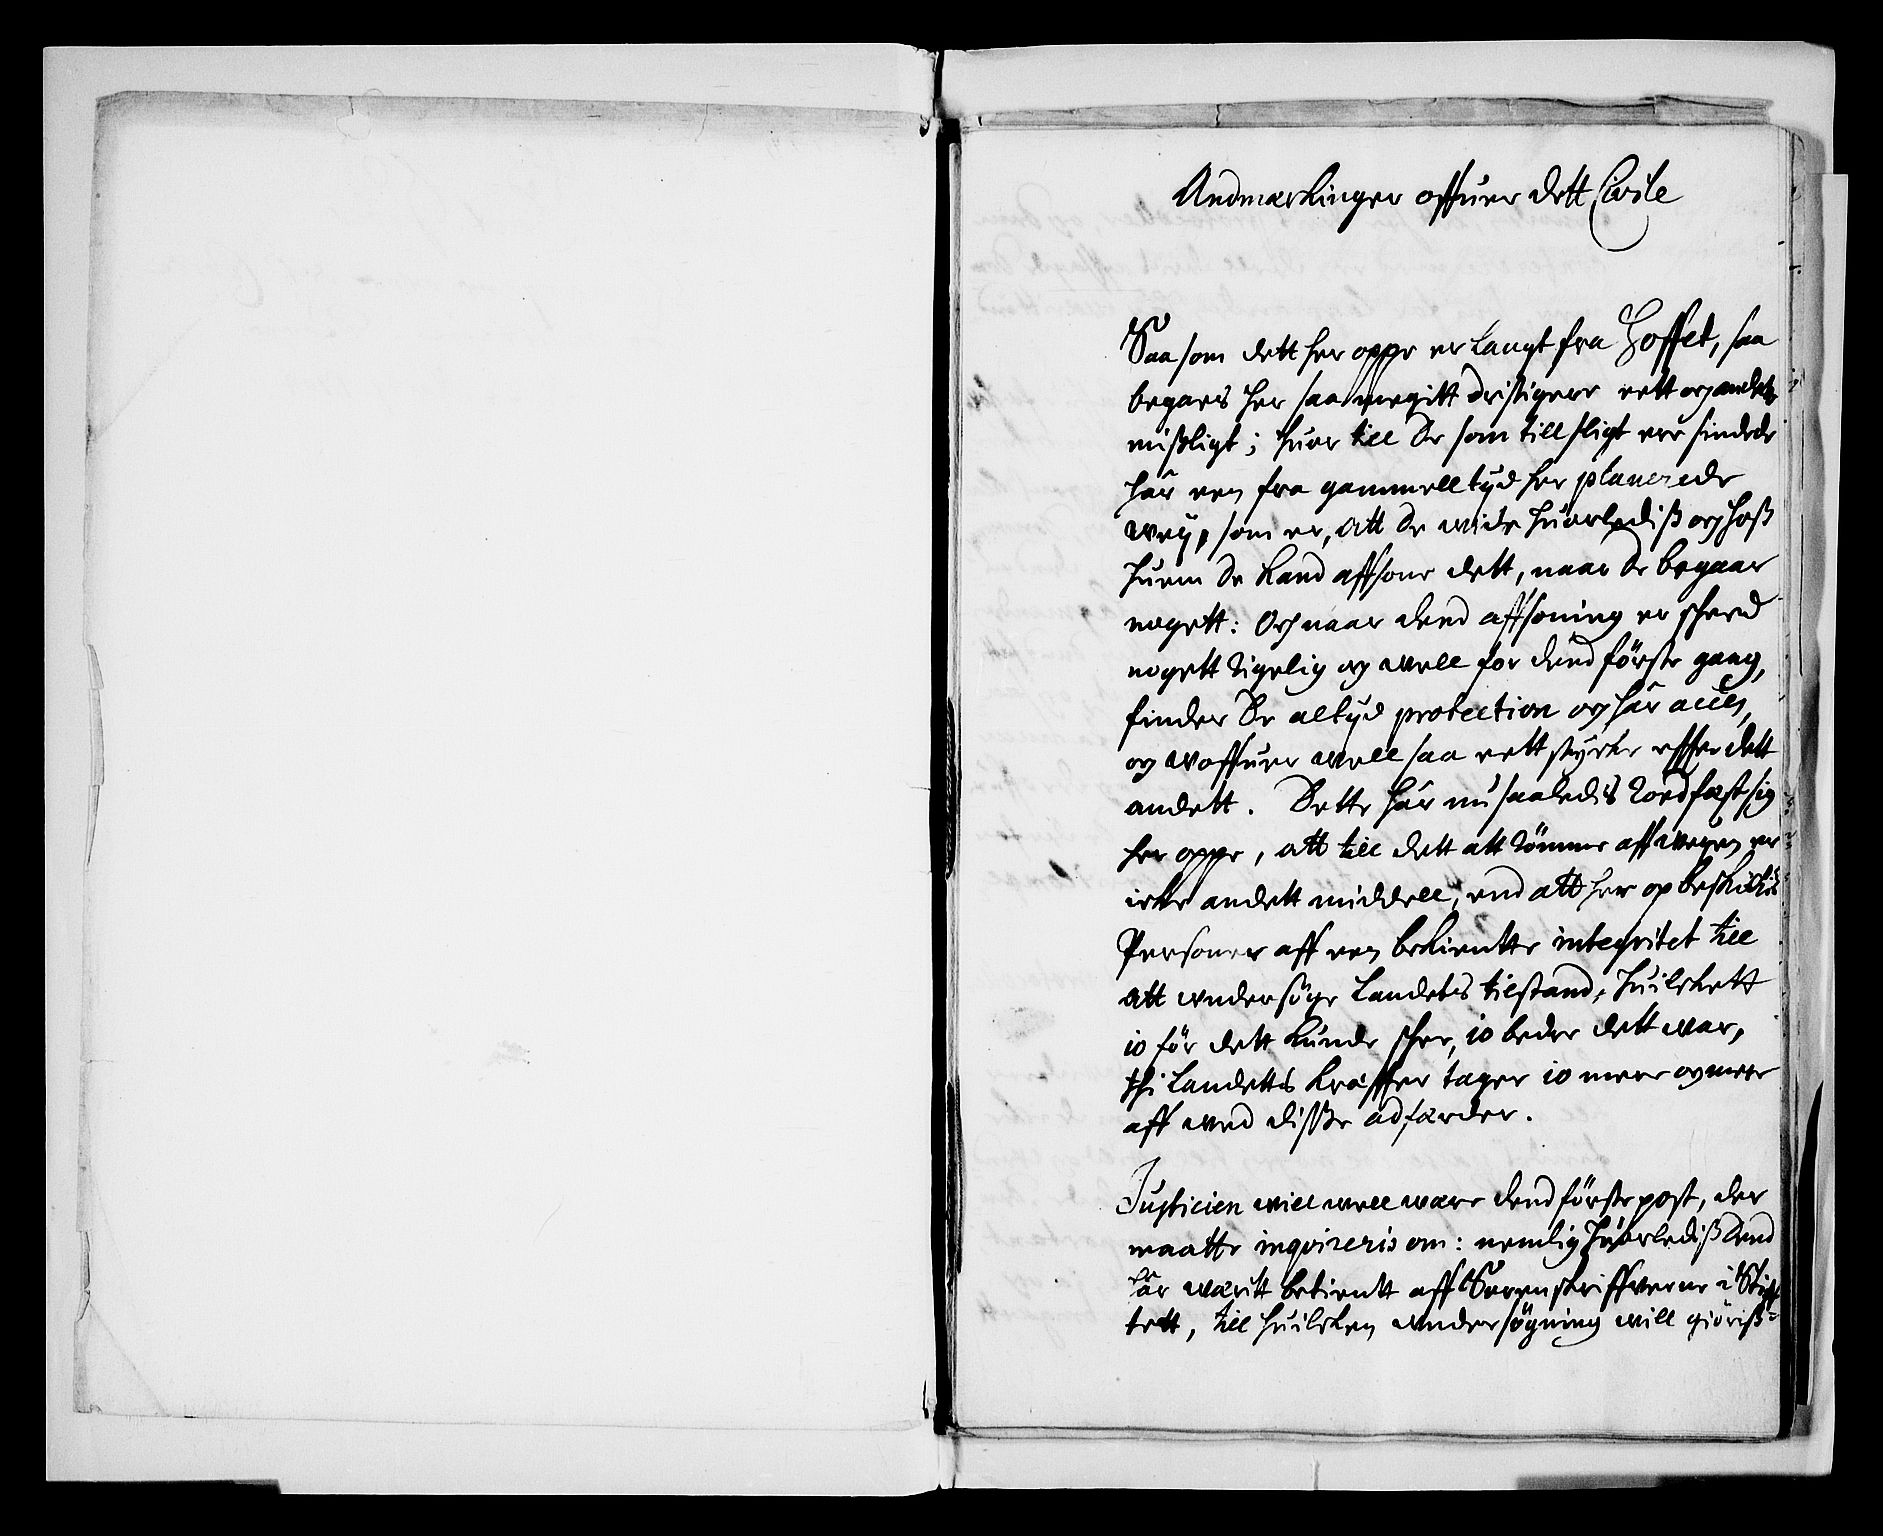 Andmærkinger offuer dett Civile
Saa som dett her oppe er langt fra Hoffet, saa
begaaes her saa megitt dristigere eett og andett
mißligt; huor till de som till sligt ere sindede
har een fra gammell tyd her planerede
wey, som er, att de wide huorlediß og hoß
huem de kand affsone dett, naar de begaar
nogett: Og naar dend affsoning er scheed
nogett rigelig og well for dend förste gang,
finder de altyd protection og har acces,
og woffuer well saa eett stycke effter dett
andett. Dette har nu saaledis rodfæst sig
her oppe, att till dett att römme aff weyen er
icke andett middell, end att her op beskickis
Personer aff een bekiendte integritet till
att undersöge Landetz tilstand, huilckett
io för dett kunde schee, io bedre dett war,
thi Landetts kræffter tager io meer og meer
aff wed disse adfærder.
Justicien will well wære dend förste post, der
maatte inqvireris om: nemlig huorlediß dend
har wæritt betient aff Sorenskriffverne i Stiff-
tett, till huilcken undersögning will giöriß=